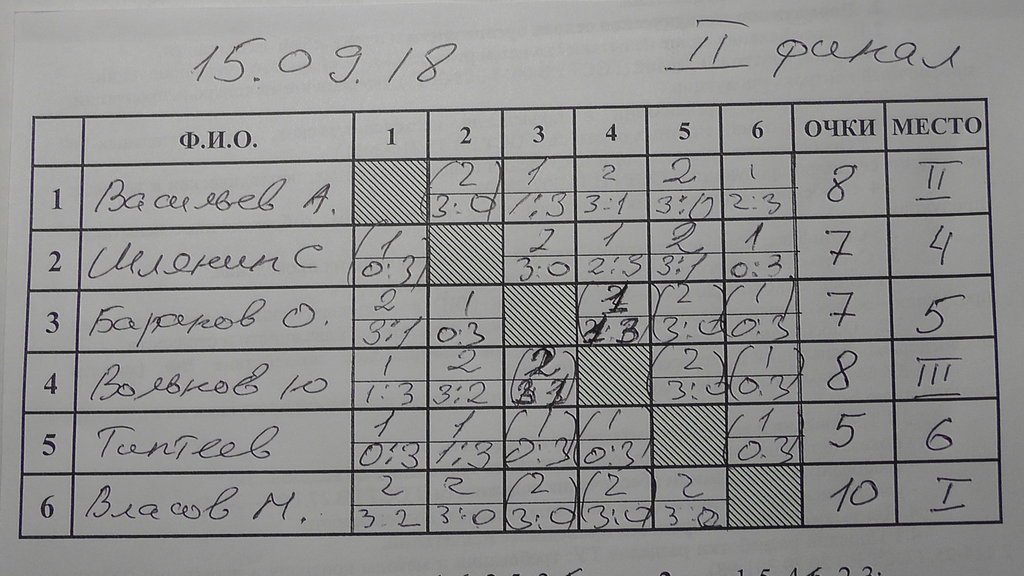 15.09.18 II финал
Ф.И.О. 1 2 3 4 5 6 ОЧКИ МЕСТО
1 Васильев А. (2 3:0) 1 1:3 2 3:1 2 3:0 1 2:3 8 II
2 Шлянин С (1 0:3) 2 3:0 1 2:3 2 3:1 1 0:3 7 4
3 Баранов О. 2 3:1 1 0:3 (1 1:3) (2 3:0) (1 0:3) 7 5
4 Вольнов Ю 1 1:3 2 3:2 (2 3:1) (2 3:0) (1 0:3) 8 III
5 Типтеев 1 0:3 1 1:3 (1 0:3) (1 0:3) (1 0:3) 5 6
6 Власов М. 2 3:2 2 3:0 (2 3:0) (2 3:0) 2 3:0 10 I